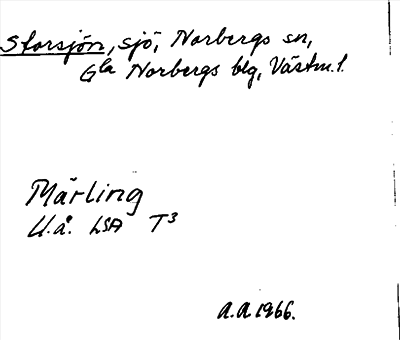 Storsjön, sjö, Norbergs sn,
Gla Norbergs blg, Västm. l.
Märling
U.å. LSA T³
A.A. 1966.